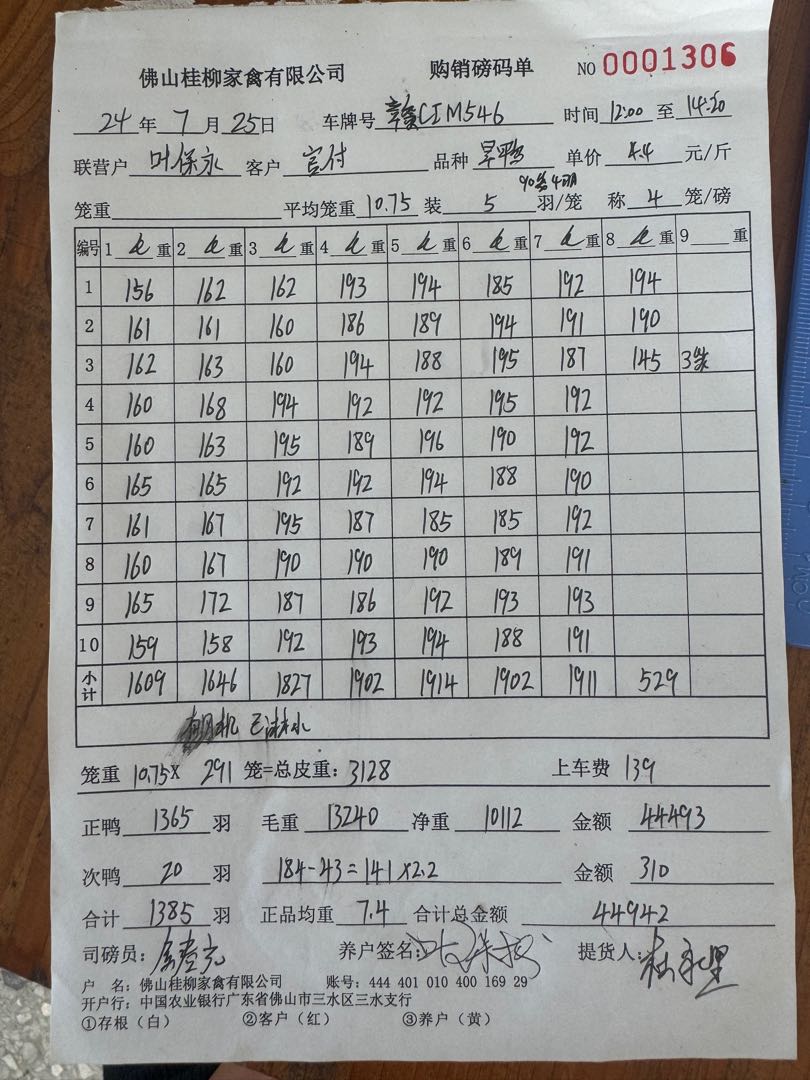 佛山桂柳家禽有限公司 购销磅码单 NO 0001306
24 年 7 月 25日 车牌号 赣CIM546 时间 12:00 至 14:20
联营户 叶保永 客户 官付 品种 旱鸭 单价 4.4 元/斤
90条4羽
笼重 平均笼重 10.75 装 5 羽/笼 称 4 笼/磅
编号 1 重 2 重 3 重 4 重 5 重 6 重 7 重 8 重 9 重
1 156 162 162 193 194 185 192 194
2 161 161 160 186 189 194 191 190
3 162 163 160 194 188 195 187 145 3条
4 160 168 194 192 192 195 192
5 160 163 195 189 196 190 192
6 165 165 192 192 194 188 190
7 161 167 195 187 185 185 192
8 160 167 190 190 190 189 191
9 165 172 187 186 192 193 193
10 159 158 192 193 194 188 191
小计 1609 1646 1827 1902 1914 1902 1911 529
已淋水
笼重 10.75X 291 笼=总皮重: 3128 上车费 139
正鸭 1365 羽 毛重 13240 净重 10112 金额 44493
次鸭 20 羽 184-43=141X2.2 金额 310
合计 1385 羽 正品均重 7.4 合计总金额 44942
司磅员: 养户签名: 提货人:
户 名: 佛山桂柳家禽有限公司 账号: 444 401 010 400 169 29
开户行: 中国农业银行广东省佛山市三水区三水支行
①存根（白） ②客户（红） ③养户（黄）